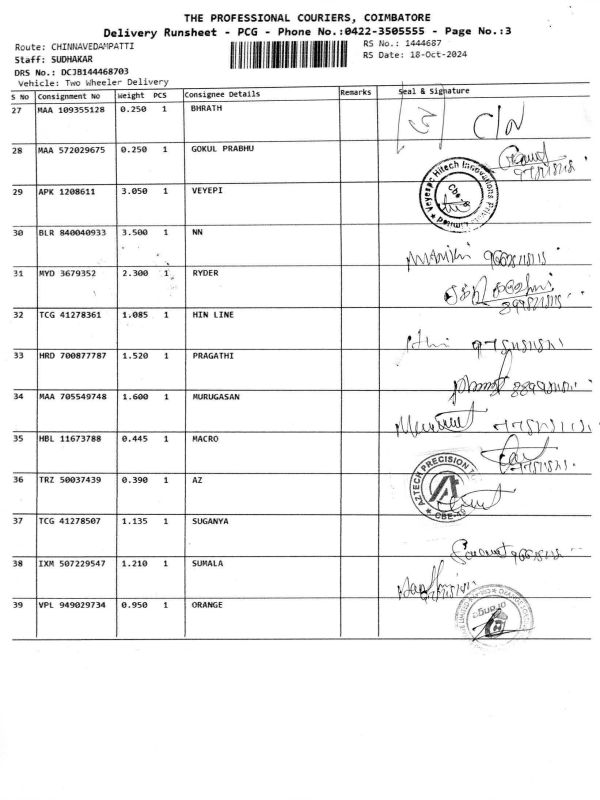 THE PROFESSIONAL COURIERS, COIMBATORE
Delivery Runsheet - PCG - Phone No.:0422-3505555 - Page No.:3
Route: CHINNAVEDAMPATTI RS No.: 1444687
Staff: SUDHAKAR RS Date: 18-Oct-2024
DRS No.: DCJB144468703
Vehicle: Two Wheeler Delivery
S No Consignment No Weight PCS Consignee Details Remarks Seal & Signature
27 MAA 109355128 0.250 1 BHRATH
28 MAA 572029675 0.250 1 GOKUL PRABHU
29 APK 1208611 3.050 1 VEYEPI
30 BLR 840040933 3.500 1 NN
31 MYD 3679352 2.300 1 RYDER
32 TCG 41278361 1.085 1 HIN LINE
33 HRD 700877787 1.520 1 PRAGATHI
34 MAA 705549748 1.600 1 MURUGASAN
35 HBL 11673788 0.445 1 MACRO
AZTECH PRECISION
36 TRZ 50037439 0.390 1 AZ
37 TCG 41278507 1.135 1 SUGANYA
38 IXM 507229547 1.210 1 SUMALA
39 VPL 949029734 0.950 1 ORANGE